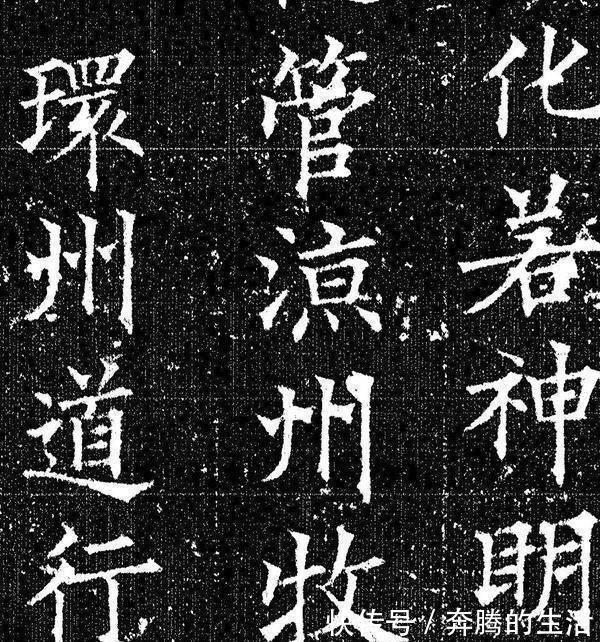 化若神明
管涼州牧
環州道行
快传号 / 奔腾的生活